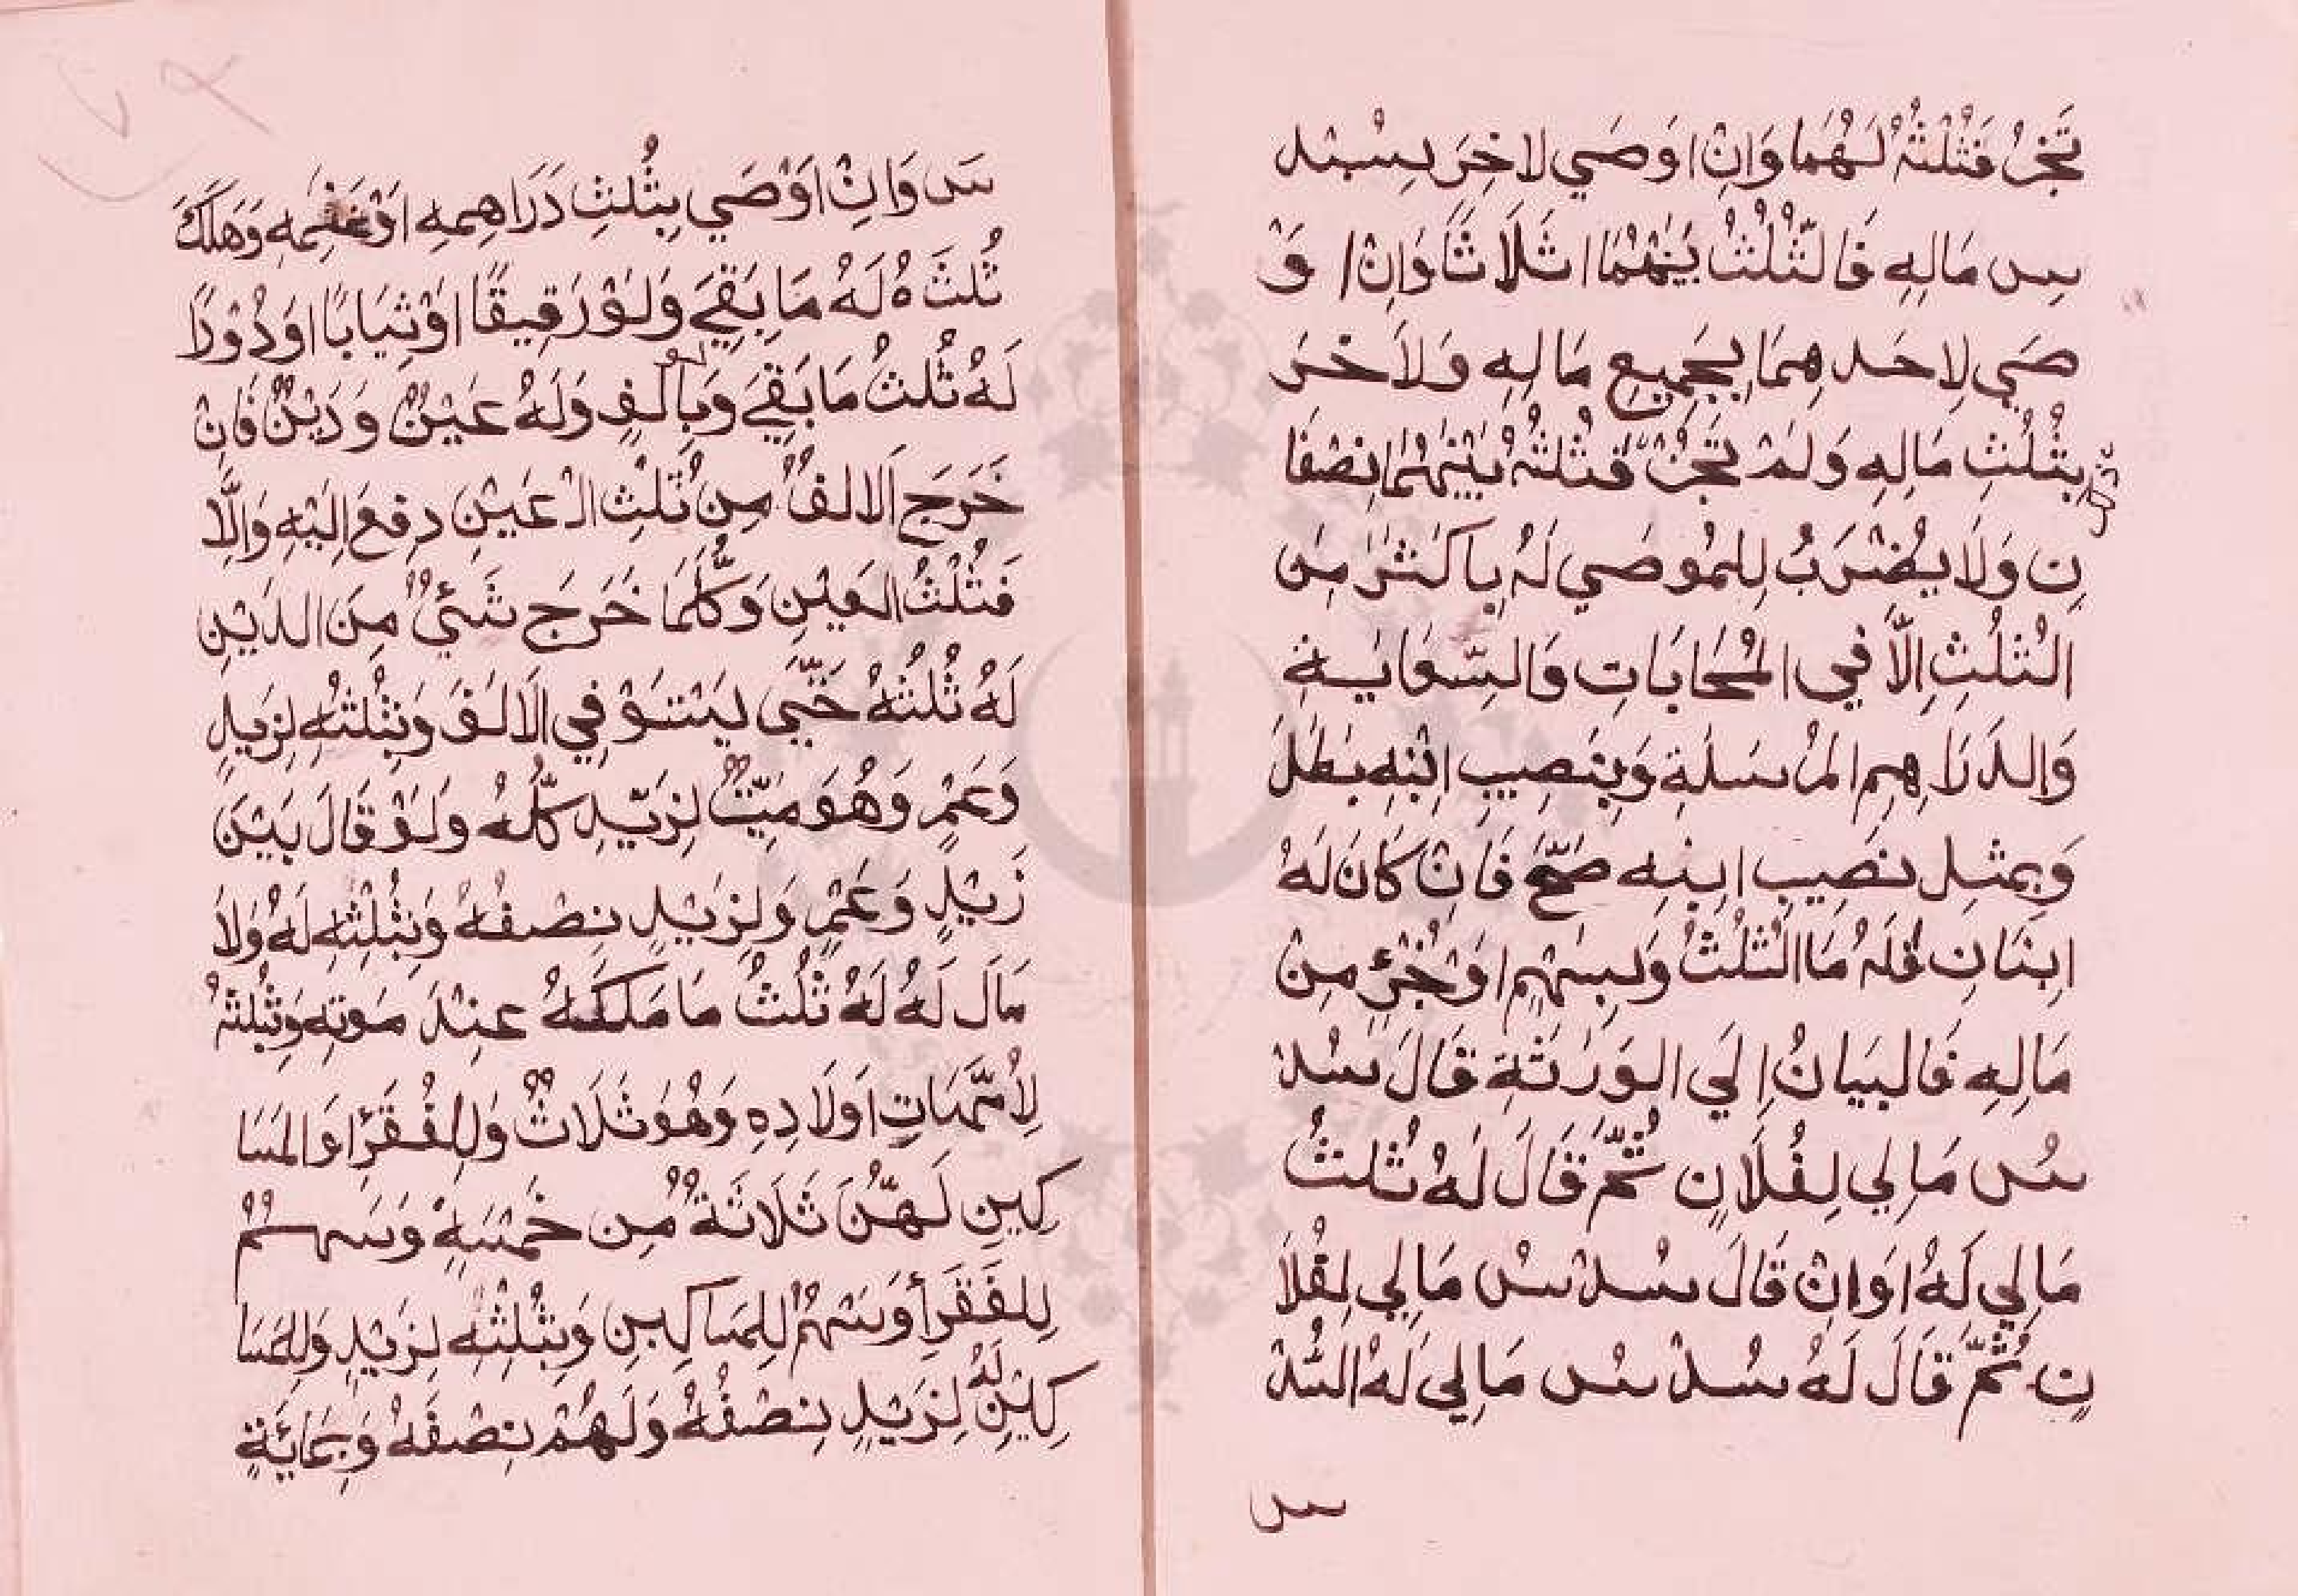 تَجُزْ فَثُلُثُهُ لَهُمَا وَاِنْ اَوْصَي لِاٰخَرَ بِسُد
سِ مَالِهِ فَالثُّلُثُ بَيْنَهُمَا اَثْلَاثًا وَاِنْ اَوْ
صَي لِاَحَدِهِمَا بِجَمِيعِ مَالِهِ وَلِاٰخَرَ
بِثُلُثِ مَالِهِ وَلَمْ تَجُزْ فَثُلُثُهُ بَيْنَهُمَا نِصْفَا
نِ وَلَا يُضْرَبُ لِلْمُوصَي لَهُ بِاَكْثَرَ مِنَ
الثُّلُثِ اِلَّا فِي الْمُحَابَاتِ وَالسِّعَايَةِ
وَالدَّرَاهِمِ الْمُرْسَلَةِ وَبِنَصِيبِ ابْنِهِ بَطَلَ
وَبِمِثْلِ نَصِيبِ ابْنِهِ صَحَّ فَاِنْ كَانَ لَهُ
ابْنَانِ فَلَهُ مَا الثُّلُثُ وَبِسَهْمٍ اَوْ جُزْءٍ مِنْ
مَالِهِ فَالْبَيَانُ اِلَي الْوَرَثَةِ قَالَ سُدْ
سُ مَالِي لِفُلَانٍ ثُمَّ قَالَ لَهُ ثُلُثُ
مَالِي لَهُ اَوَاِنْ قَالَ سُدْسُ مَالِي لِفُلَا
نٍ ثُمَّ قَالَ لَهُ سُدْسُ مَالِي لَهُ السُّدْ
سس
سُ وَاِنْ اَوْصَي بِثُلُثِ دَرَاهِمِهِ اَوْ غَنَمِهِ وَهَلَكَ
ثُلُثَاهُ لَهُ مَا بَقِيَ وَلَوْ رَقِيقًا اَوْ ثِيَابًا اَوْ دُوْرًا
لَهُ ثُلُثُ مَا بَقِيَ وَبِاَلْفٍ وَلَهُ عَيْنٌ وَدَيْنٌ فَاِنْ
خَرَجَ الْاَلْفُ مِنْ ثُلُثِ الْعَيْنِ دُفِعَ اِلَيْهِ وَاِلَّا
فَثُلُثُ الْعَيْنِ وَكُلَّمَا خَرَجَ شَئْيٌ مِنَ الدَّيْنِ
لَهُ ثُلُثُهُ حَتَّي يَسْتَوْفِي الْاَلْفَ وَبِثُلُثِهِ لِزَيْدٍ
وَعَمْرٍ وَهُوَ مَيِّتٌ لِزَيْدٍ كُلُّهُ وَلَوْ قَالَ بَيْنَ
زَيْدٍ وَعَمْرٍ وَلِزَيْدٍ نِصْفُهُ وَبِثُلُثِهِ لَهُ وَلَا
مَالَ لَهُ لَهُ ثُلُثُ مَا مَلَكَهُ عِنْدَ مَوْتِهِ وَبِثُلُثِهِ
لِاُمَّهَاتِ اَوْلَادِهِ وَهُوَ ثَلَاثٌ وَلِلْفُقَرَا وَالْمَسَا
كِينِ لَهُنَّ ثَلَاثَةٌ مِنْ خَمْسَةٍ وَسَهْمٌ
لِلْفُقَرَا وَسَهْمٌ لِلْمَسَاكِينِ وَبِثُلُثِهِ لِزَيْدٍ وَلِلْمَسَا
كِيْنِ لَهُ لِزَيْدٍ نِصْفُهُ وَلَهُمْ نِصْفُهُ وَبِمَائَةٍ